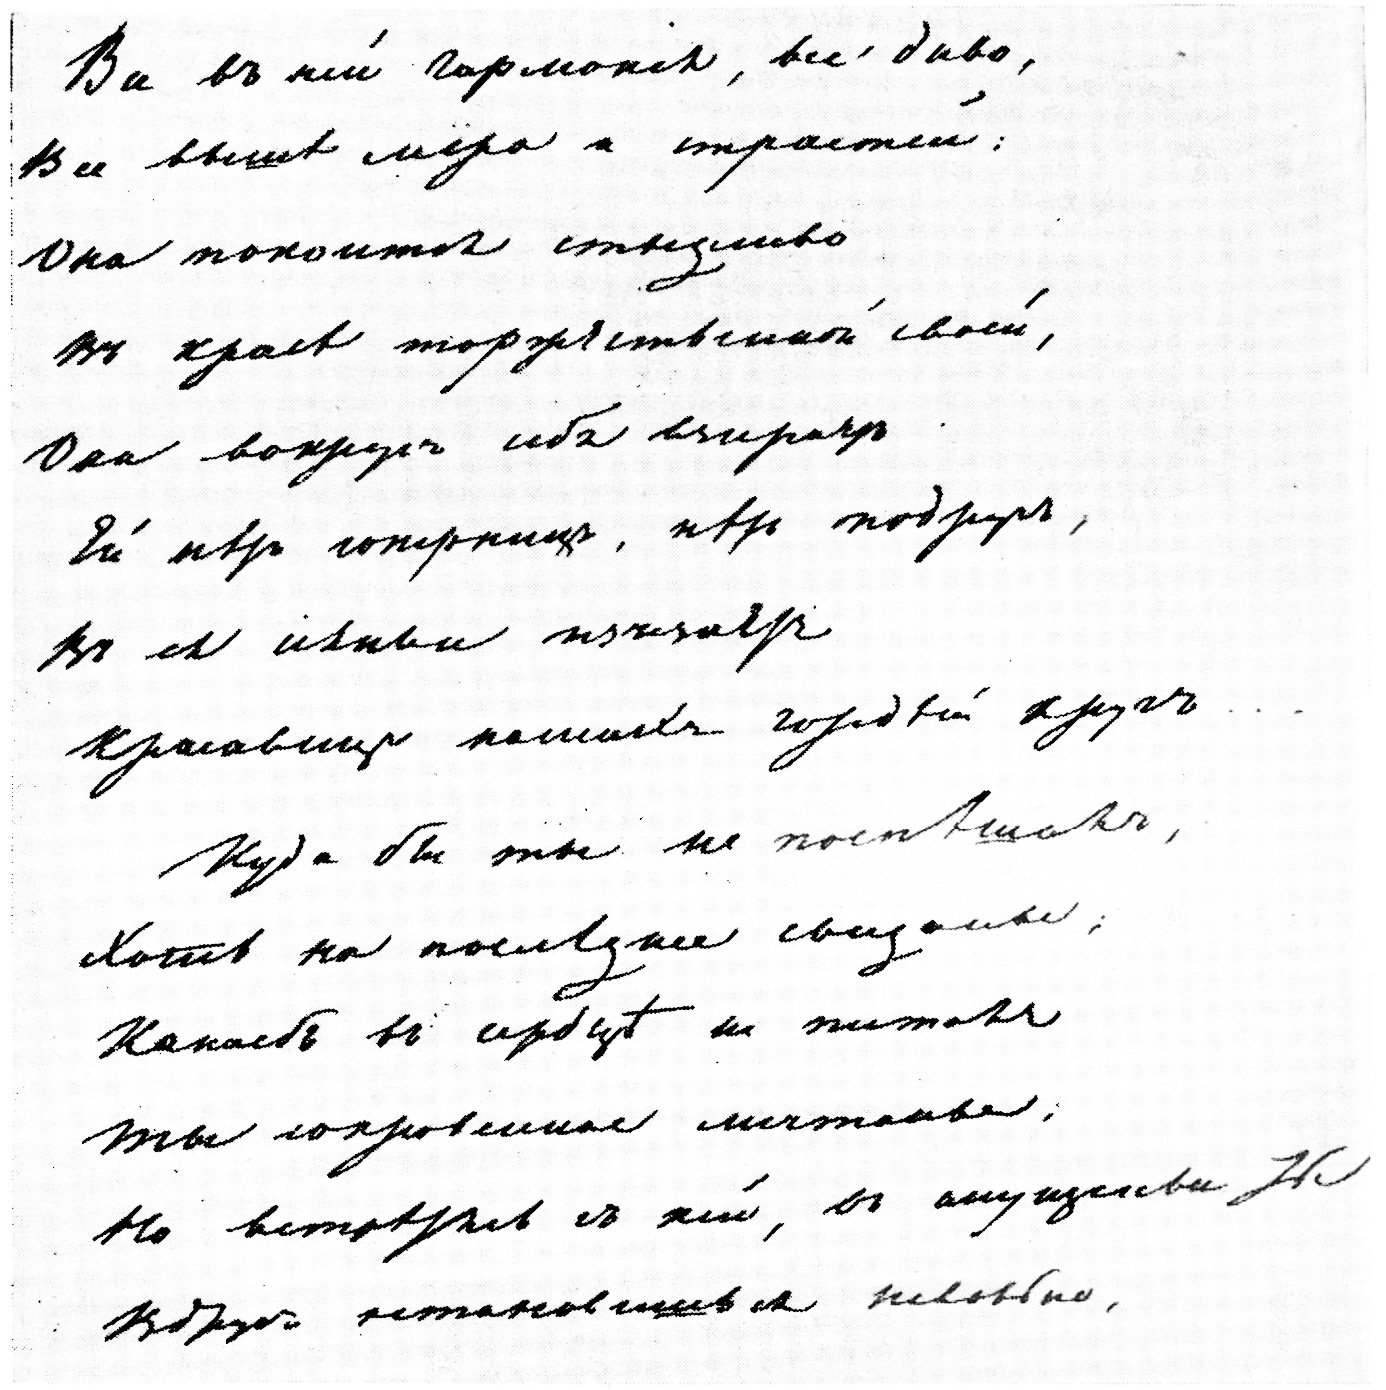 Все въ ней гармонія, все диво,
Все выше міра и страстей:
Она покоится стыдливо
Въ красѣ торжественной своей,
Она вокругъ себя взираетъ
Ей нѣтъ соперницъ, нѣтъ подругъ,
Въ ея сіяньи изчезаетъ
Красавицъ нашихъ гордый кругъ ...
Куда бы ты не поспѣшалъ,
Хоть на послѣднее свиданье;
Какоебъ въ сердцѣ не питалъ
Ты сокровенное мечтанье;
Но встрѣтясь съ ней, въ смущеньи ты
Вдругъ остановишься невольно,